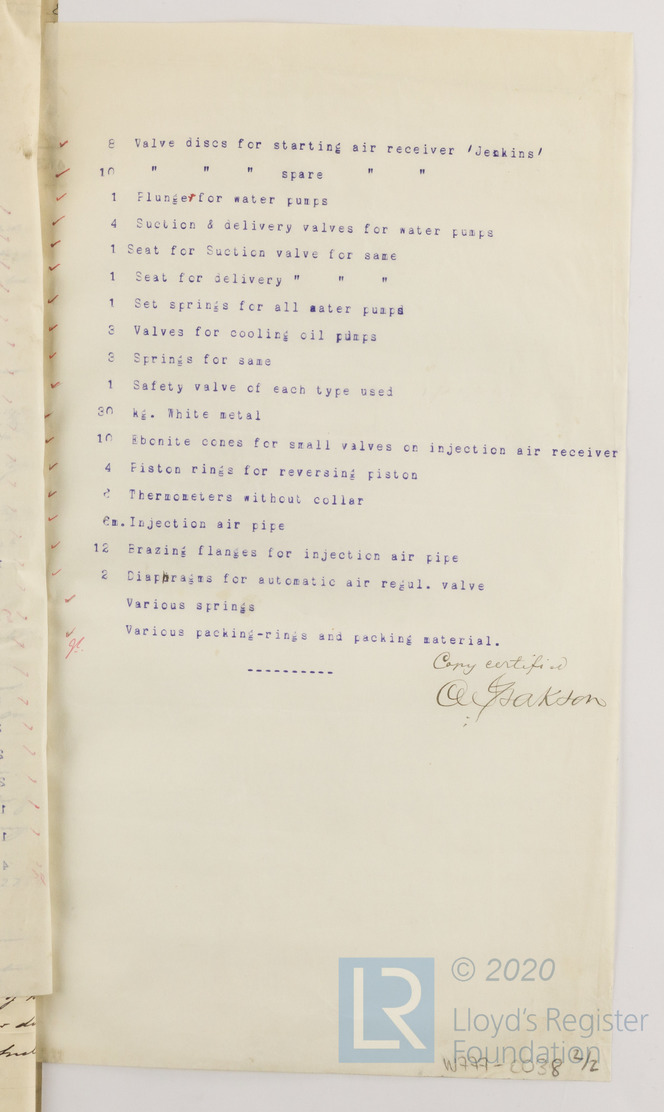 8 Valve discs for starting air receiver 'Jenkins'
10 " " " spare " "
1 Plunger for water pumps
4 Suction & delivery valves for water pumps
1 Seat for Suction valve for same
1 Seat for delivery " " "
1 Set springs for all water pumps
3 Valves for cooling oil pumps
3 Springs for same
1 Safety valve of each type used
30 kg. White metal
10 Ebonite cones for small valves on injection air receiver
4 Piston rings for reversing piston
Thermometers without collar
6m. Injection air pipe
12 Brazing flanges for injection air pipe
2 Diaphragms for automatic air regul. valve
Various springs
Various packing-rings and packing material.
----------
Copy certified
O Isakson
LR
© 2020
Lloyd's Register
Foundation
W797-0038 2/2